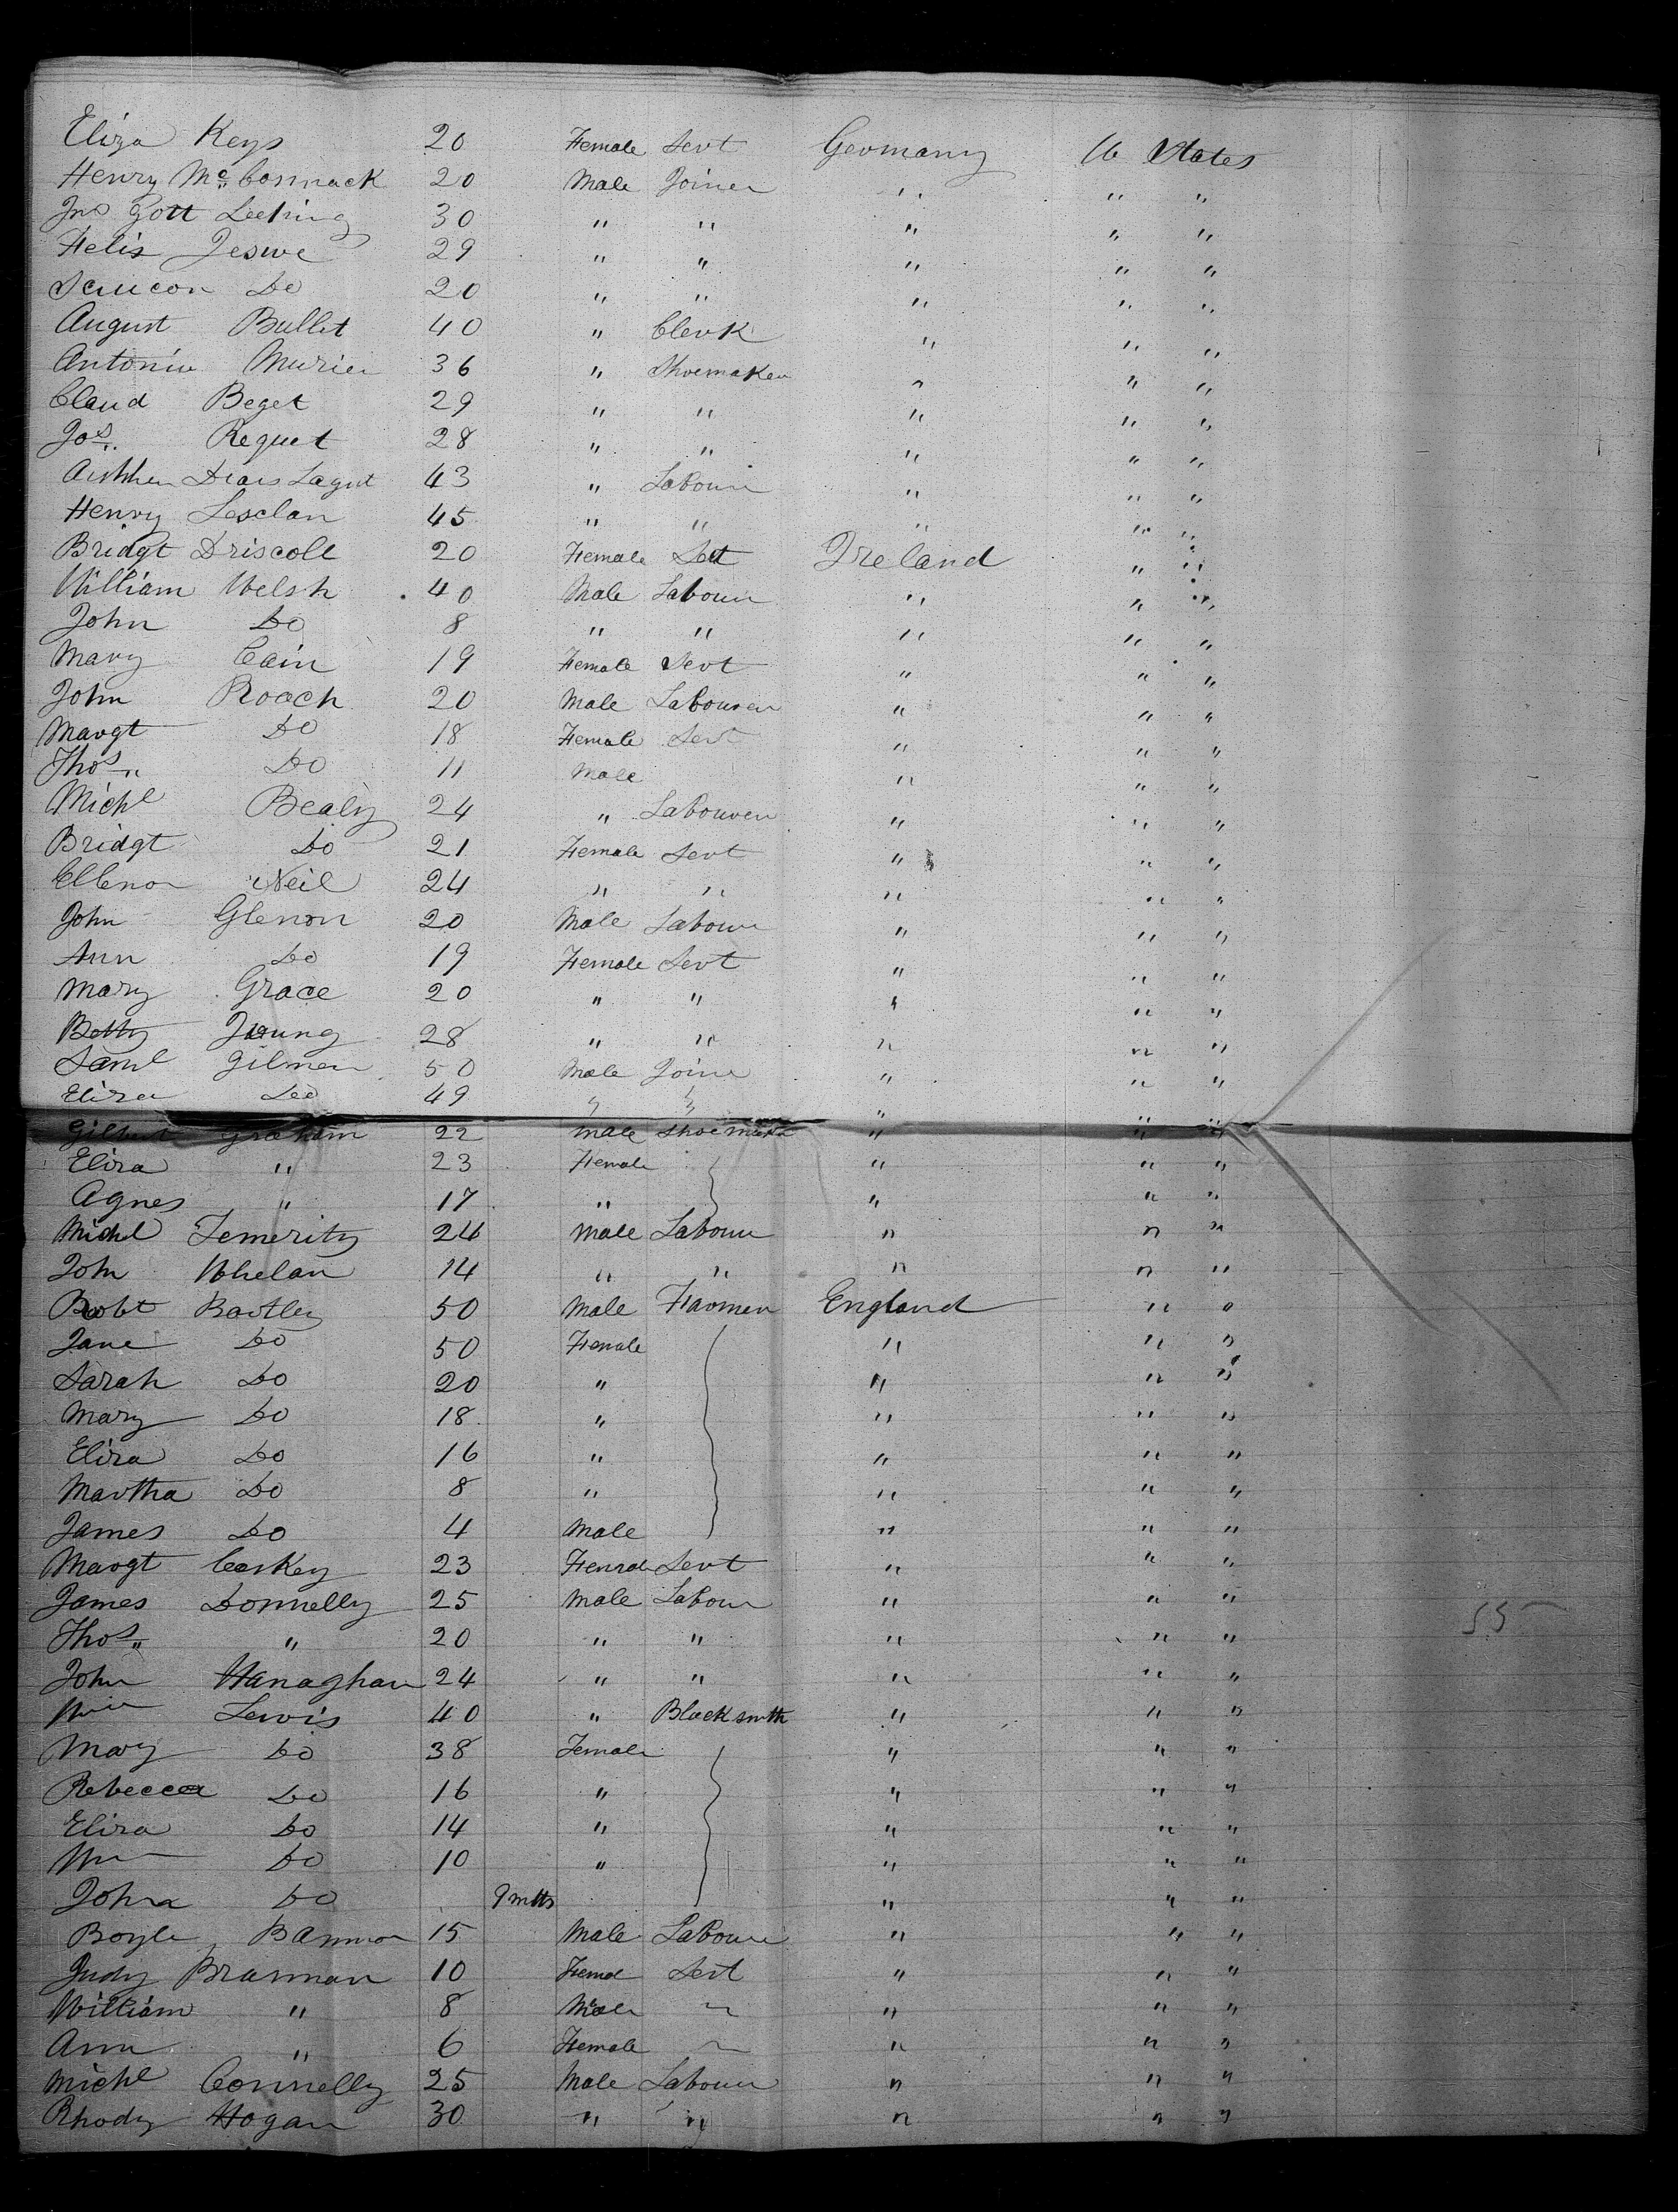 Eliza Keys 20 Female Servt Germany U States
Henry McCormack 20 Male Joiner " " "
Jno Gott Leehing 30 " " " " "
Felix Jeswe 29 " " " " "
Do 20 " " " " "
August Bullet 40 " Clerk " " "
Antonin Murier 36 " Shoemaker " " "
Claud Beget 29 " " " " "
Jos. Requet 28 " " " " "
43 " Labour " " "
Henry Lesclan 45 " " " " "
Bridgt Driscoll 20 Female Set Ireland " "
William Welsh 40 Male Labour " " "
John Do 8 " " " " "
Mary Cain 19 Female Servt " " "
John Roach 20 Male Labourer " " "
Margt Do 18 Female Servt " " "
Thos " Do 11 Male " " "
Michl Bealy 24 " Labourer " " "
Bridgt Do 21 Female Servt " " "
Ellenor Neil 24 " " " " "
John Glenon 20 Male Labour " " "
Ann Do 19 Female Servt " " "
Mary Grace 20 " " " " "
Betty Young 28 " " " " "
Saml Gilmer 50 Male Joiner " " "
Eliza Do 49 " " " " "
Gilbert Graham 22 Male Shoemaker " " "
Eliza " 23 Female " " "
Agnes " 17 " " " "
Michl Temerity 24 Male Labour " " "
John Whelan 14 " " " " "
Robt Bartley 50 Male Farmer England " "
Jane Do 50 Female " " "
Sarah Do 20 " " " "
Mary Do 18 " " " "
Eliza Do 16 " " " "
Martha Do 8 " " " "
James Do 4 Male " " "
Margt Caskey 23 Female Servt " " "
James Donnelly 25 Male Labour " " "
Thos " " 20 " " " " "
John Hanaghan 24 " " " " "
Wm Lewis 40 " Blacksmth " " "
Mary Do 38 Female " " "
Rebecca Do 16 " " " "
Eliza Do 14 " " " "
Wm Do 10 " " " "
John Do 9 mths " " "
Boyle Bannon 15 Male Labour " " "
Judy Brannan 10 Femal Servt " " "
William " 8 Male " " " "
Ann " 6 Female " " " "
Michl Connelly 25 Male Labour " " "
Rhody Hogan 30 " " " " "
55